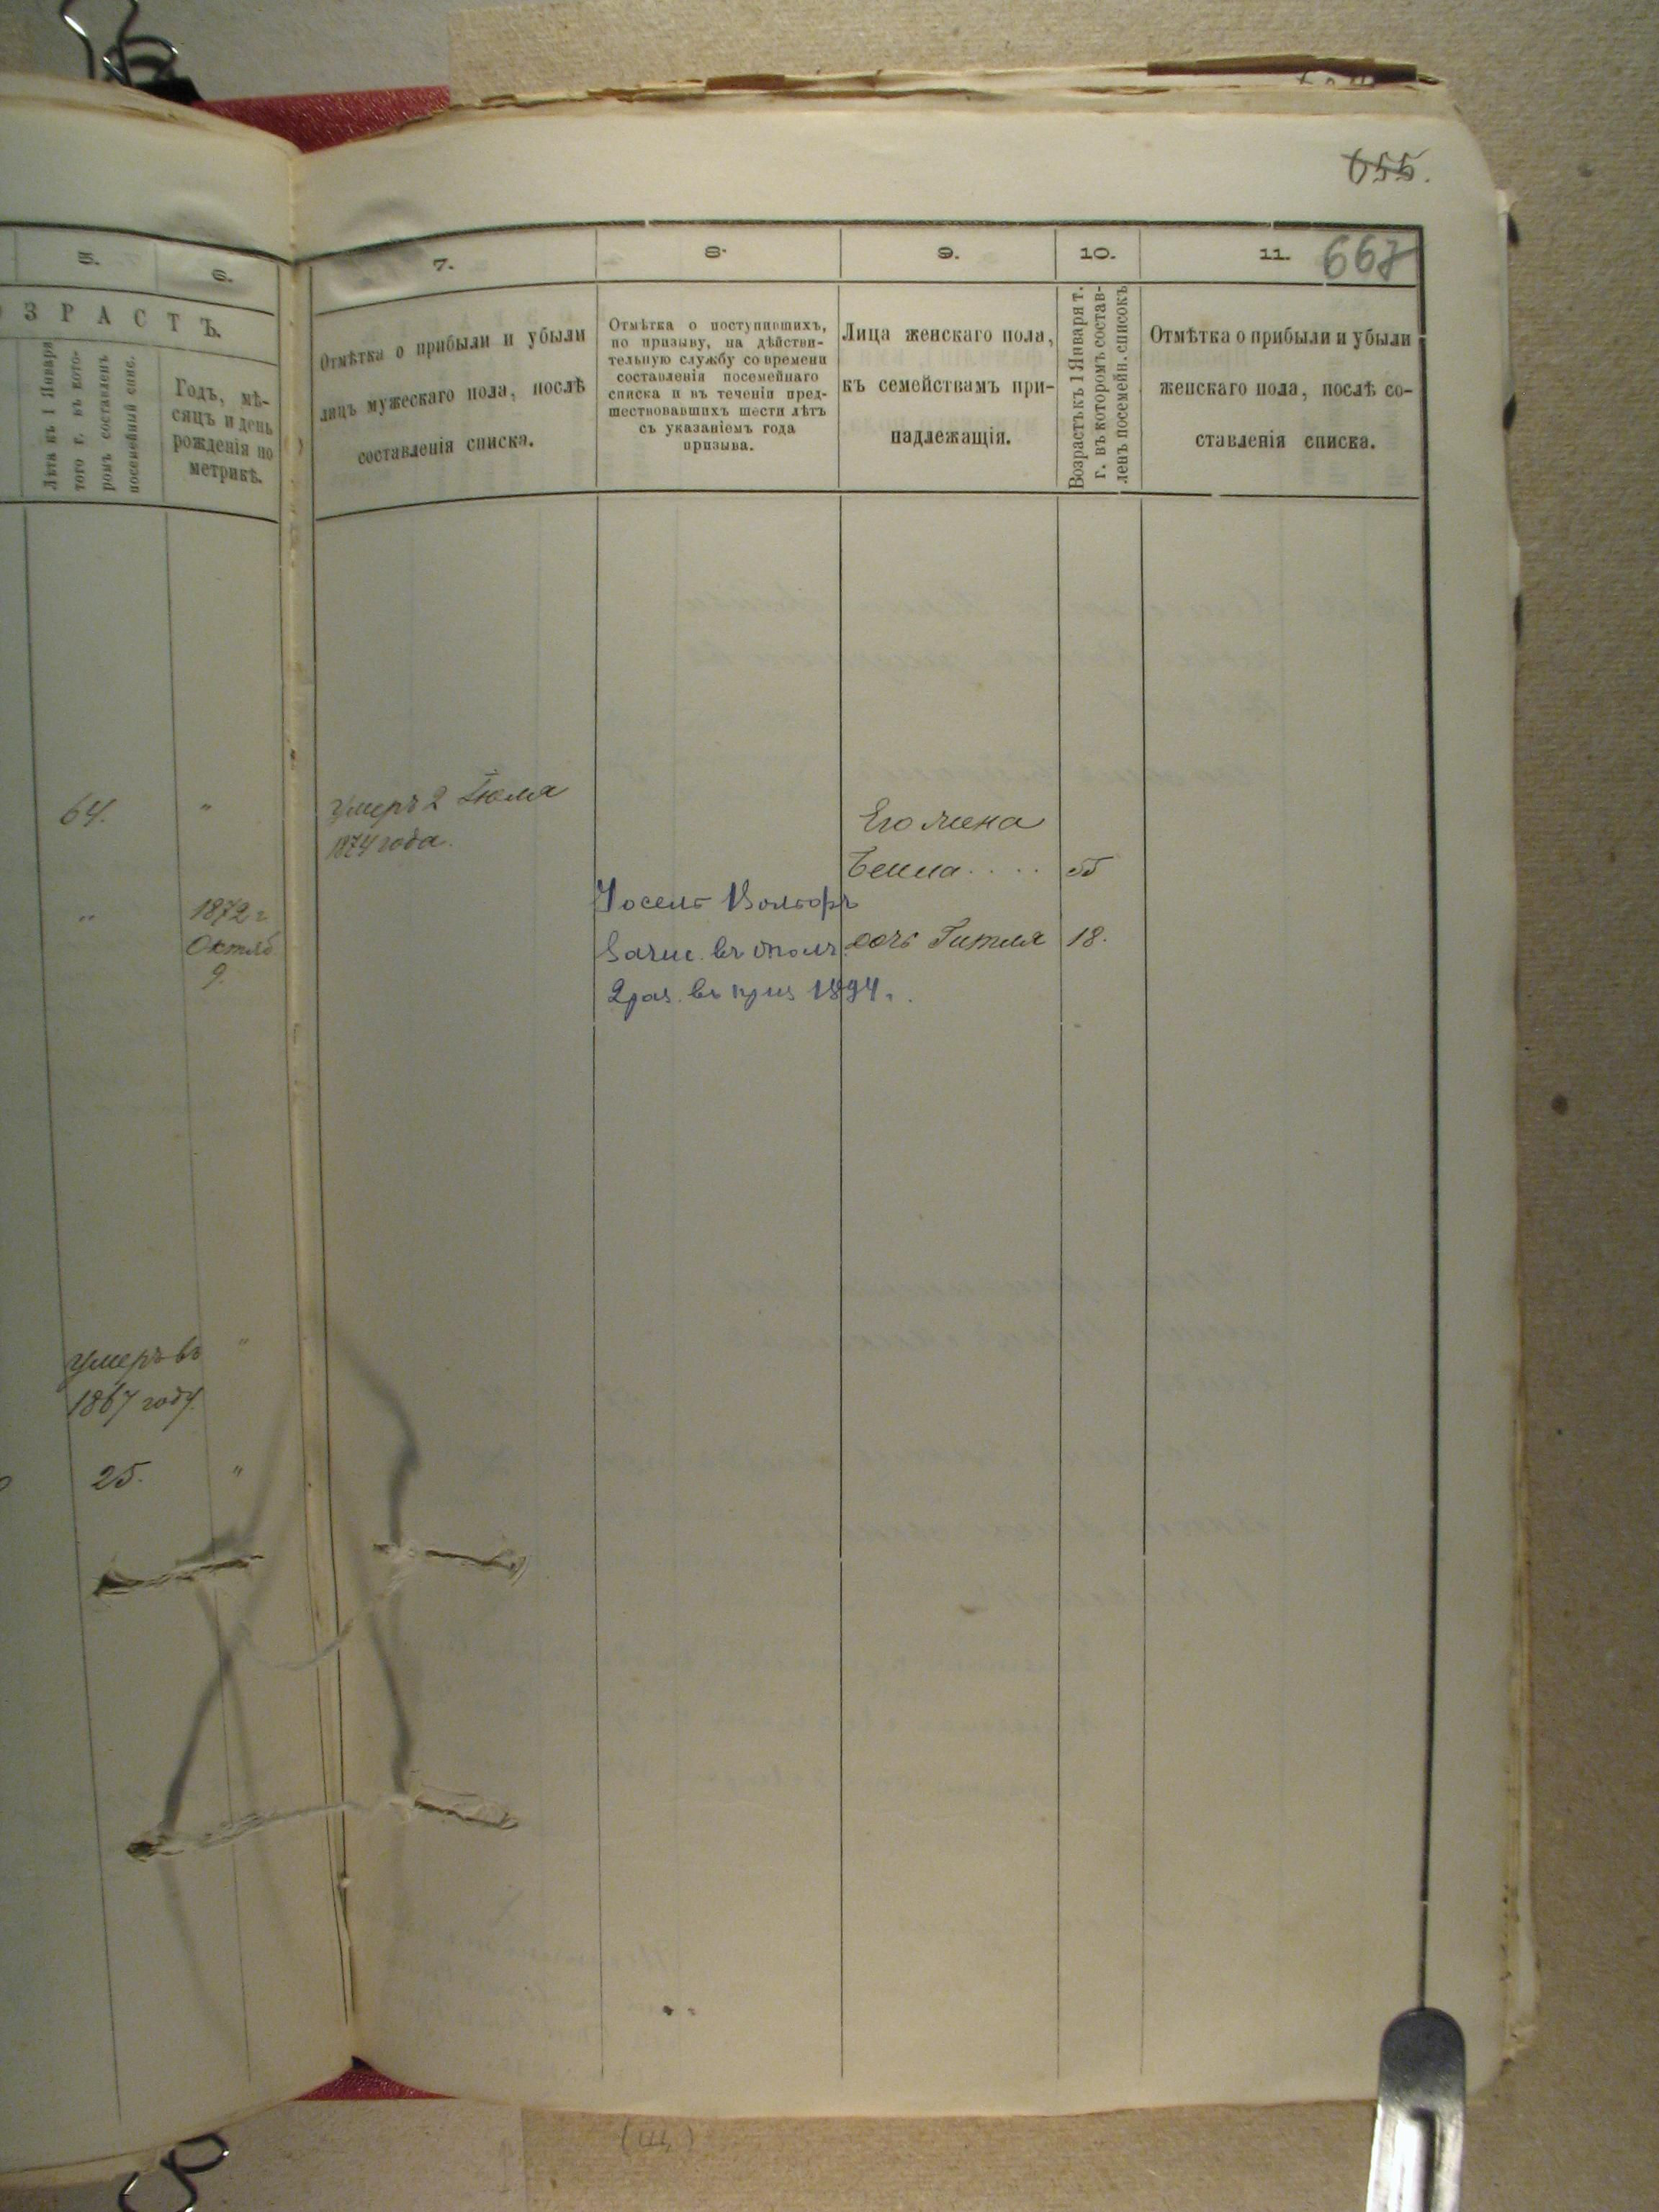 655.
667
5.
6.
7.
8.
9.
10.
11.
ОЗРАСТЪ.
Лѣта къ 1 Января
того г. въ кото-
ромъ составленъ
посемейный спис.
Годъ, мѣ-
сяцъ и день
рожденія по
метрикѣ.
Отмѣтка о прибыли и убыли
лицъ мужескаго пола, послѣ
составленія списка.
Отмѣтка о поступившихъ,
по призыву, на дѣйстви-
тельную службу со времени
составленія посемейнаго
списка и въ теченіи пред-
шествовавшихъ шести лѣтъ
съ указаніемъ года
призыва.
Лица женскаго пола,
къ семействамъ при-
надлежащія.
Возрастъ къ 1 Января т.
г. въ которомъ состав-
ленъ посемейн. списокъ
Отмѣтка о прибыли и убыли
женскаго пола, послѣ со-
ставленія списка.
64. "
умеръ 2 Іюля
1874 года.
Его жена
Бейла.... 55
" 1872 г.
Октяб
9.
Іосель Волфоръ
Зачис. въ опол.
2 раз. въ приз 1894 г.
дочь Гитля 18.
умеръ въ "
1867 году.
25. "